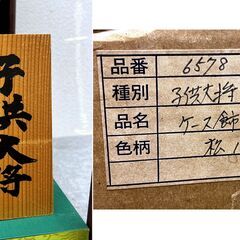 子供大将
品番 6578
種別 子供大将
品名 ケース飾
色柄